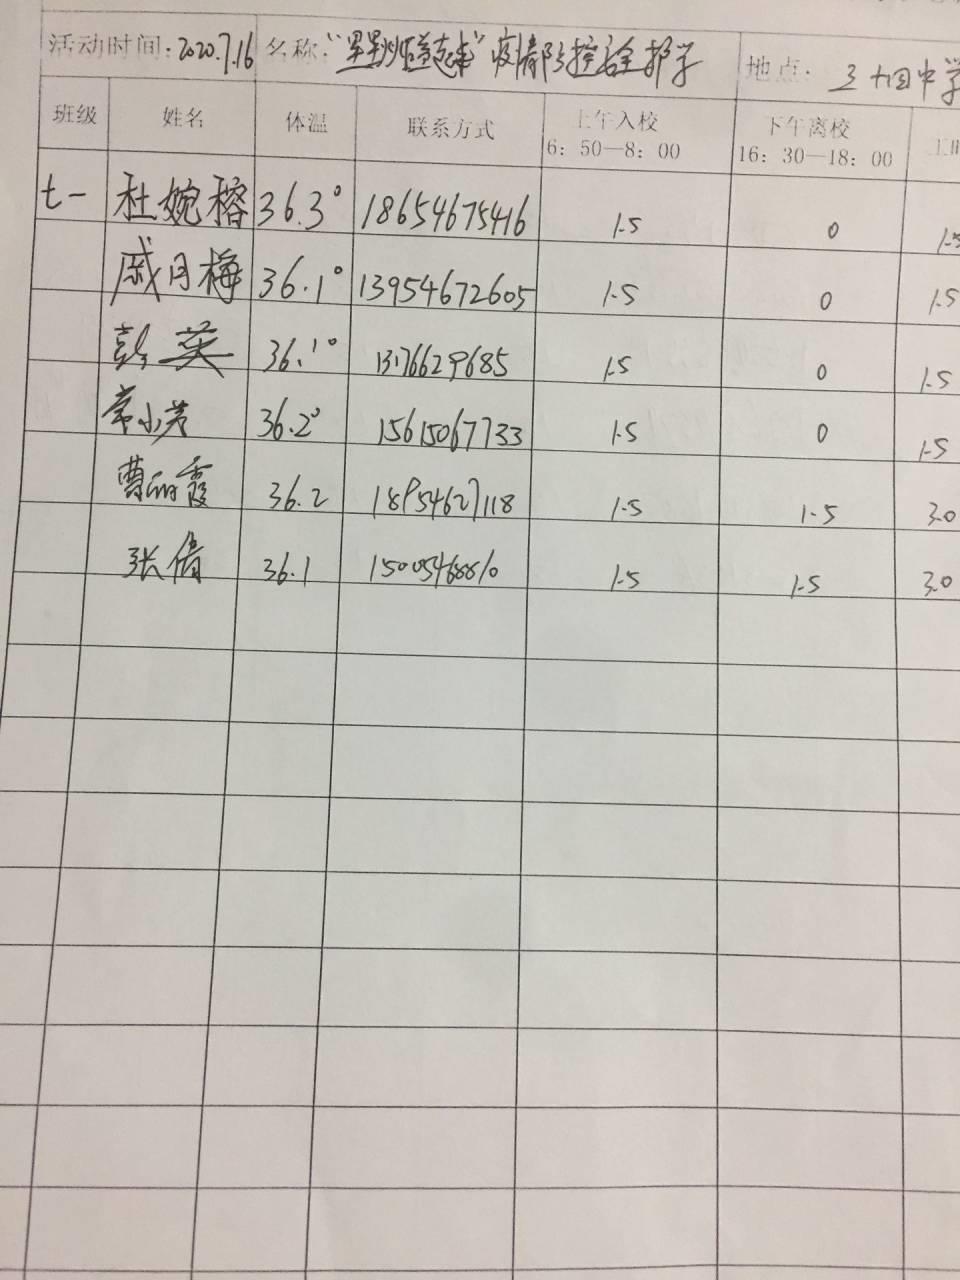 活动时间: 2020.7.16 名称: 疫情防控安全护学 地点: 中学
班级 姓名 体温 联系方式 上午入校 6:50—8:00 下午离校 16:30—18:00 工时
七一 杜婉榕 36.3° 18654675416 1.5 0 1.5
戚月梅 36.1° 13954672605 1.5 0 1.5
彭英 36.1° 13176629685 1.5 0 1.5
常小芳 36.2° 15615067733 1.5 0 1.5
曹丽霞 36.2 18954627118 1.5 1.5 3.0
张倩 36.1 1.5 1.5 3.0